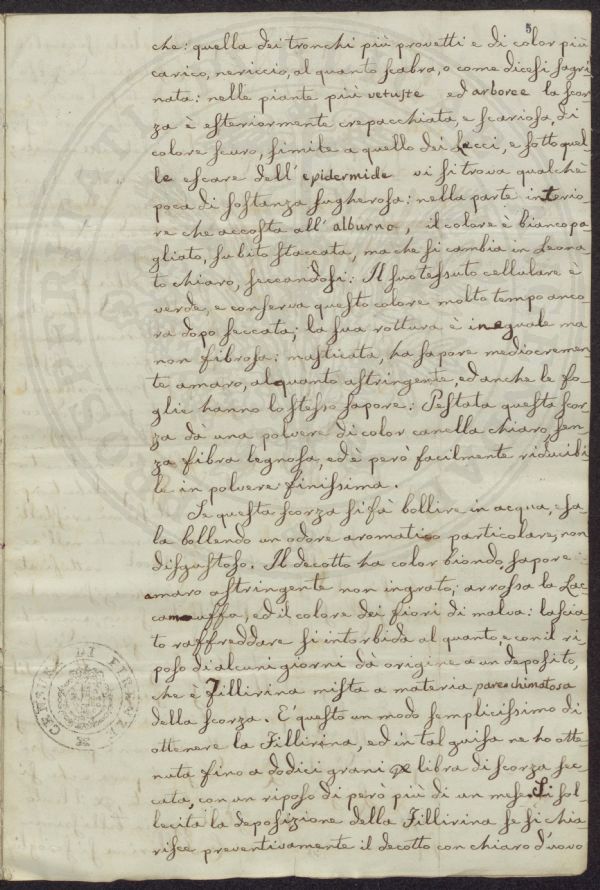 5
che: quella dei tronchi più provetti e di color più
carico, nericcio, al quanto scabra, o come dicesi sagri
nata: nelle piante più vetuste ed arboree la scor
za è esteriormente crepacchiata, e scariosa, di
colore scuro, simile a quello dei Lecci, e sotto quel
le escare dell' epidermide vi si trova qualchè
poca di sostanza sugherosa: nella parte interio
re che accosta all' alburno, il colore è biancopa
gliato, subito staccata, ma che si cambia in Leona
to chiaro, seccandosi: Il suo tessuto cellulare è
verde, e conserva questo colore molto tempo anco
ra dopo seccata; la sua rottura è ineguale ma
non fibrosa: masticata, ha sapore mediocremen
te amaro, alquanto astringente, ed anche le fo
glie hanno lo stesso sapore: Pestata questa scor
za dà una polvere di color canella chiaro, sen
za fibra legnosa, ed è però facilmente riducibi
le in polvere finissima.
Se questa scorza si fà bollire in acqua, esa
la bollendo un odore aromatico particolare, non
disgustoso. Il decotto ha color biondo, sapore
amaro astringente non ingrato; arrossa la Lac
camuffa, ed il colore dei fiori di malva: lascia
to raffreddare si intorbida al quanto, e con il ri
poso di alcuni giorni dà origine a un deposito,
che è Fillirina mista a materia parenchimatosa
della scorza. E' questo un modo semplicissimo di
ottenere la Fillirina, ed in tal guisa ne ho otte
nuta fino a dodici grani libra di scorza sec
cata, con un riposo di però più di un mese. Si sol
lecita la deposizione della Fillirina se si chia
risce preventivamente il decotto con chiaro d'uovo